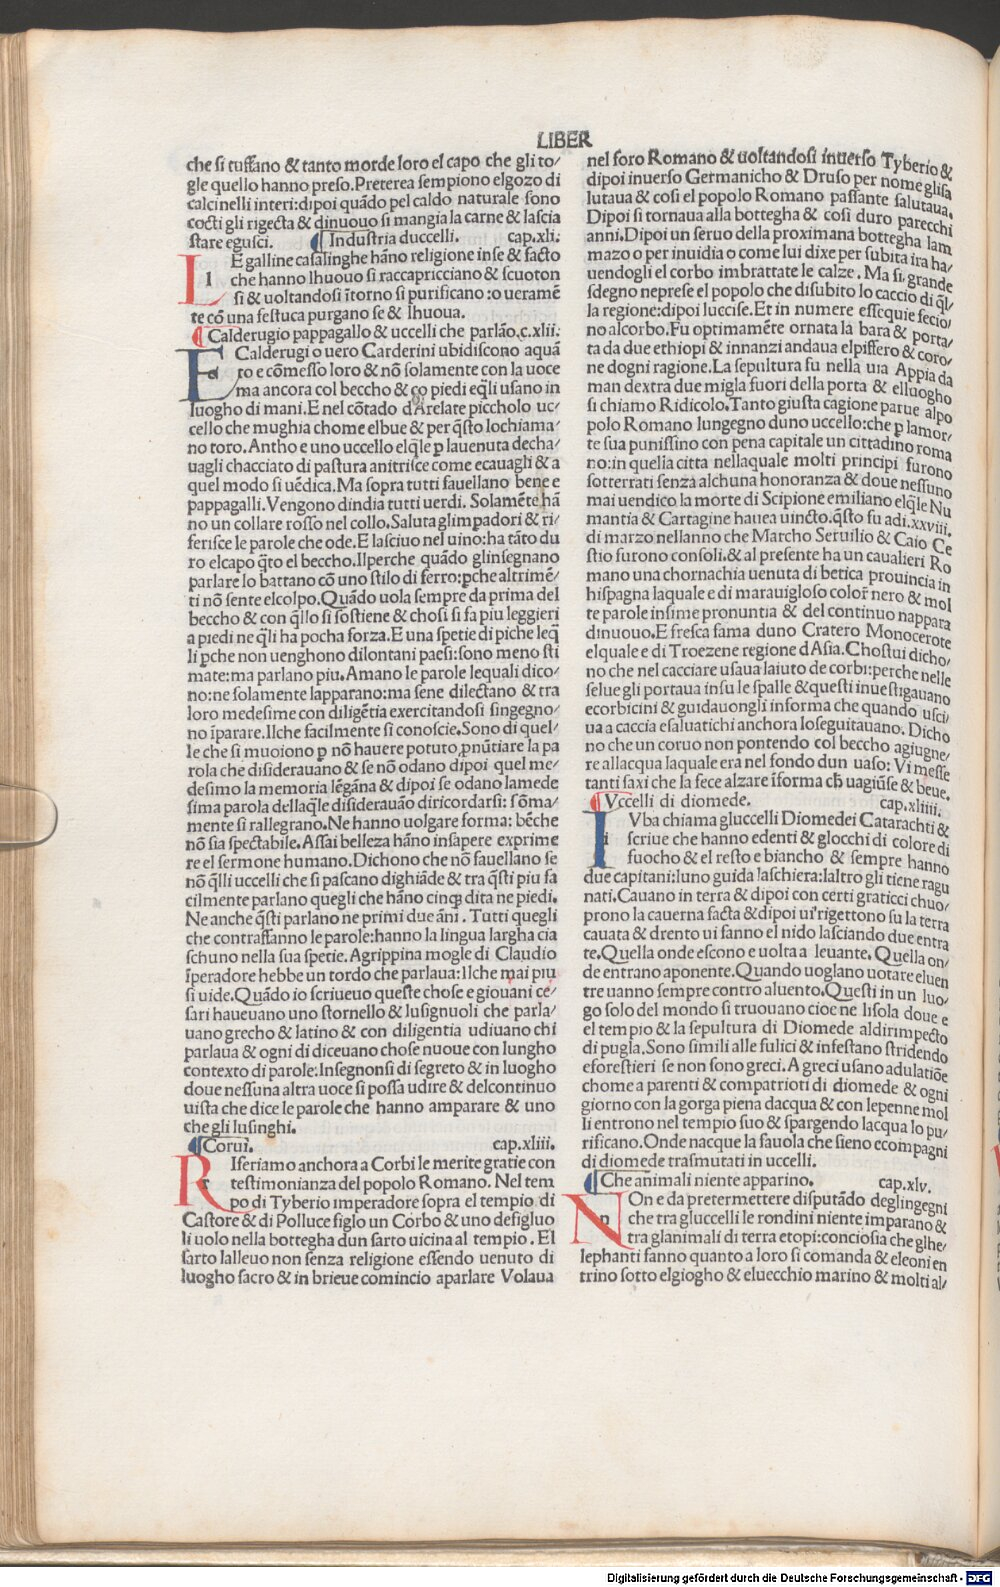 LIBER
che si tuffano & tanto morde loro el capo che gli to/
gle quello hanno preso. Preterea sempiono elgozo di
calcinelli interi: dipoi quãdo pel caldo naturale sono
cocti gli rigecta & dinuouo si mangia la carne & lascia
stare egusci. ¶ Industria duccelli. cap.xli.
LE galline casalinghe hãno religione inse & facto
che hanno lhuouo si raccapricciano & scuoton
si & uoltandosi ĩtorno si purificano: o ueramẽ
te cõ una festuca purgano se & lhuoua.
¶ Calderugio pappagallo & uccelli che parlão.c.xlii:
ECalderugi o uero Carderini ubidiscono aquã
to e cõmesso loro & nõ solamente con la uoce
ma ancora col beccho & co piedi eq̃li usano in
luogho di mani. E nel cõtado dArelate piccholo uc/
cello che mughia chome elbue & per q̃sto lochiama/
no toro. Antho e uno uccello elq̃le ꝑ lauenuta decha/
uagli chacciato di pastura anitrisce come ecauagli & a
quel modo si uẽdica. Ma sopra tutti fauellano bene e
pappagalli. Vengono dindia tutti uerdi. Solamẽte hã
no un collare rosso nel collo. Saluta glimpadori & ri/
ferisce le parole che ode. E lasciuo nel uino: ha tãto du
ro elcapo q̃to el beccho. Ilperche quãdo glinsegnano
parlare lo battano cõ uno stilo di ferro: ꝑche altrimẽ/
ti nõ sente elcolpo. Quãdo uola sempre da prima del
beccho & con q̃llo si sostiene & chosi si fa piu leggieri
a piedi ne q̃li ha pocha forza. E una spetie di piche leq̃
li ꝑche non uenghono dilontani paesi: sono meno sti
mate: ma parlano piu. Amano le parole lequali dico/
no: ne solamente lapparano: ma sene dilectano & tra
loro medesime con diligẽtia exercitandosi singegno/
no ĩparare. Ilche facilmente si conoscie. Sono di quel/
le che si muoiono ꝑ nõ hauere potuto ꝓnũtiare la pa
rola che disiderauano & se nõ odano dipoi quel me/
desimo la memoria lẽgãna & dipoi se odano lamede
sima parola dellaq̃le disiderauão diricordarsi: sõma/
mente si rallegrano. Ne hanno uolgare forma: bẽche
nõ sia spectabile. Assai belleza hãno insapere exprime
re el sermone humano. Dichono che nõ fauellano se
nõ q̃lli uccelli che si pascano dighiãde & tra q̃sti piu fa
cilmente parlano quegli che hãno cinq; dita ne piedi.
Ne anche q̃sti parlano ne primi due ãni. Tutti quegli
che contraffanno le parole: hanno la lingua largha cia
schuno nella sua spetie. Agrippina mogle di Claudio
ĩperadore hebbe un tordo che parlaua: Ilche mai piu
si uide. Quãdo io scriueuo queste chose e giouani ce/
sari haueuano uno stornello & lusignuoli che parla/
uano grecho & latino & con diligentia udiuano chi
parlaua & ogni di diceuano chose nuoue con lungho
contexto di parole: Insegnonsi di segreto & in luogho
doue nessuna altra uoce si possa udire & delcontinuo
uista che dice le parole che hanno amparare & uno
che gli lusinghi.
¶ Corui. cap.xliii.
RIferiamo anchora a Corbi le merite gratie con
testimonianza del popolo Romano. Nel tem
po di Tyberio imperadore sopra el tempio di
Castore & di Polluce figlo un Corbo & uno defigluo
li uolo nella bottegha dun sarto uicina al tempio. El
sarto lalleuo non senza religione essendo uenuto di
luogho sacro & in brieue comincio aparlare Volaua
nel foro Romano & uoltandosi inuerso Tyberio &
dipoi inuerso Germanicho & Druso per nome glisa
lutaua & cosi el popolo Romano passante salutaua.
Dipoi si tornaua alla bottegha & cosi duro parecchi
anni. Dipoi un seruo della proximana bottegha lam
mazo o per inuidia o come lui dixe per subita ira ha/
uendogli el corbo imbrattate le calze. Ma si grande
sdegno neprese el popolo che disubito lo caccio di q̃l/
la regione: dipoi luccise. Et in numere essequie fecio/
no alcorbo. Fu optimamẽte ornata la bara & porta/
ta da due ethiopi & innanzi andaua elpiffero & coro/
ne dogni ragione. La sepultura fu nella uia Appia da
man dextra due migla fuori della porta & elluogho
si chiamo Ridicolo. Tanto giusta cagione parue alpo
polo Romano lungegno duno uccello: che ꝑ lamor/
te sua punissino con pena capitale un cittadino roma
no: in quella citta nellaquale molti principi furono
sotterrati senza alchuna honoranza & doue nessuno
mai uendico la morte di Scipione emiliano elq̃le Nu
mantia & Cartagine hauea uincto. q̃sto fu adi.xxviii.
di marzo nellanno che Marcho Seruilio & Caio Ce
stio furono consoli. & al presente ha un caualieri Ro
mano una chornachia uenuta di betica prouincia in
hispagna laquale e di marauigloso color nero & mol
te parole insime pronuntia & del continuo nappara
dinuouo. E fresca fama duno Cratero Monocerote
elquale e di Troezene regione dAsia. Chostui dicho/
no che nel cacciare usaua laiuto de corbi: perche nelle
selue gli portaua insu le spalle & questi inuestigauano
ecorbicini & guidauongli informa che quando usci/
ua a caccia esaluatichi anchora loseguitauano. Dicho
no che un coruo non pontendo col beccho agiugne/
re allacqua laquale era nel fondo dun uaso: Vi messe
tanti saxi che la fece alzare ĩforma ch̃ uagiũse & beue.
¶ Vccelli di diomede. cap.xliiii.
IVba chiama gluccelli Diomedei Catarachti &
scriue che hanno edenti & glocchi di colore di
fuocho & el resto e biancho & sempre hanno
due capitani: luno guida laschiera: laltro gli tiene ragu
nati. Cauano in terra & dipoi con certi graticci chuo/
prono la cauerna facta & dipoi ui rigettono su la terra
cauata & drento ui fanno el nido lasciando due entra
te. Quella onde escono e uolta a leuante. Quella on/
de entrano aponente. Quando uoglano uotare eluen
tre uanno sempre contro aluento. Questi in un luo/
go solo del mondo si truouano cioe ne lisola doue e
el tempio & la sepultura di Diomede aldirimpecto
di pugla. Sono simili alle fulici & infestano stridendo
eforestieri se non sono greci. A greci usano adulatiõe
chome a parenti & compatrioti di diomede & ogni
giorno con la gorga piena dacqua & con lepenne mol
li entrono nel tempio suo & spargendo lacqua lo pu/
rificano. Onde nacque la fauola che sieno ecompagni
di diomede trasmutati in uccelli.
¶ Che animali niente apparino. cap.xlv.
NOn e da pretermettere disputãdo deglingegni
che tra gluccelli le rondini niente imparano &
tra glanimali di terra etopi: conciosia che glhe/
lephanti fanno quanto a loro si comanda & eleoni en
trino sotto elgiogho & eluecchio marino & molti al/
Digitalisierung gefördert durch die Deutsche Forschungsgemeinschaft - DFG